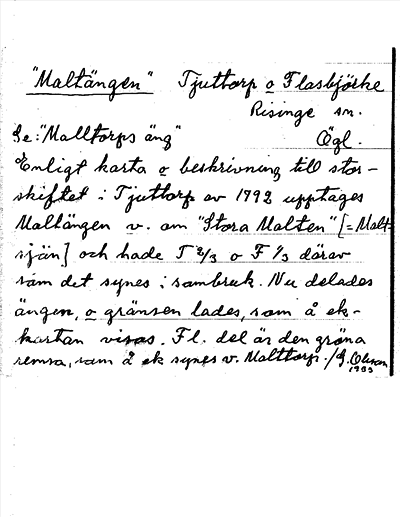 "Maltängen" Tjuttorp o Flasbjörke
Risinge sn.
Se: "Malltorps äng" Ögl.
Enligt karta o beskrivning till stor-
skiftet i Tjuttorp av 1792 upptages
Maltängen v. om "Stora Malten" [= Malt-
sjän] och hade T 2/3 o F 1/3 därav
som det synes i sambruk. Nu delades
ängen, o gränsen lades, som å ek-
kartan visas. Fl. del är den gröna
remsa, som å ek synes v. Malttorp. / G. Olsson
1933